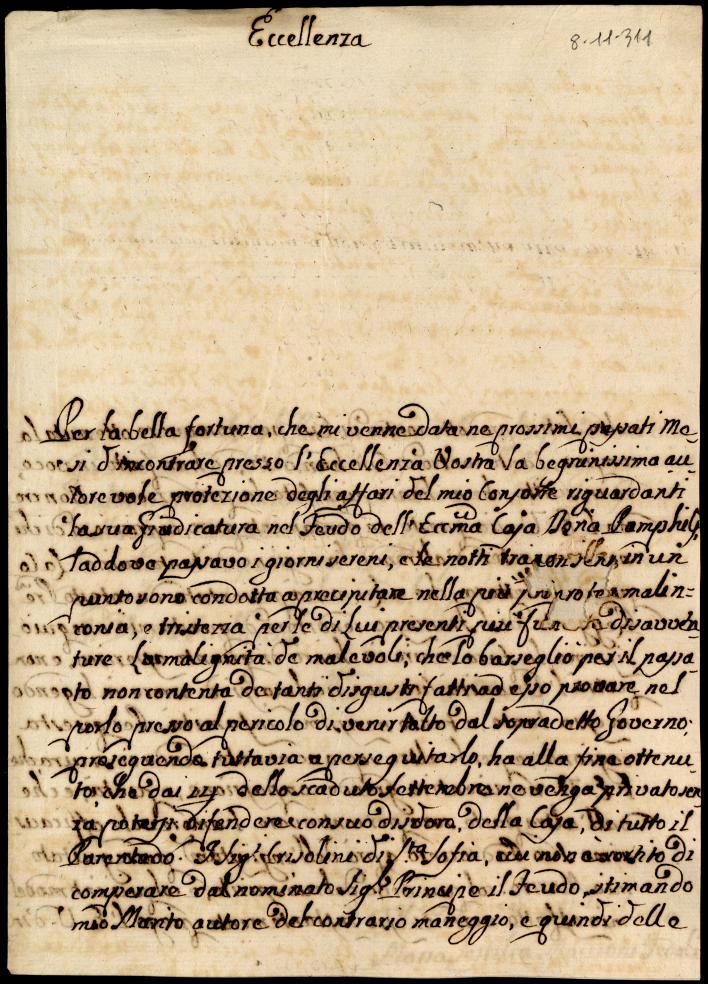 Eccellenza
8-11-311
Per la bella fortuna, che mi venne data ne prossimi passati Me-
si d'incontrare presso l'Eccellenza Vostra la benignissima au-
torevole protezione degli affari del mio Consorte riguardanti
la sua Giudicatura nel Feudo dell'Eccma Casa Doria Pamphilj,
laddove passavo i giorni sereni, e le notti tranquille, in un
punto sono condotta a precipitare nella più malin-
conia, e tristezza per le di Lui presenti disavven
ture. La malignità de malevoli, che lo barseglio per il passa-
to non contenta de tanti disgusti fatti ad esso provare nel
porlo presso al pericolo di venir tolto dal sopradetto Governo,
proseguendo tuttavia a perseguitarlo, ha alla fine ottenu-
to, che dai dello scaduto settembre ne venga privato sen
za potersi difendere con suo disdoro, della Casa, di tutto il
Parentado. Il Sigr Crisolini di Sta Sofia, cui non è sortito di
comperare dal nominato Sigr Principe il Feudo, stimando
mio Marito autore del contrario maneggio, e quindi delle